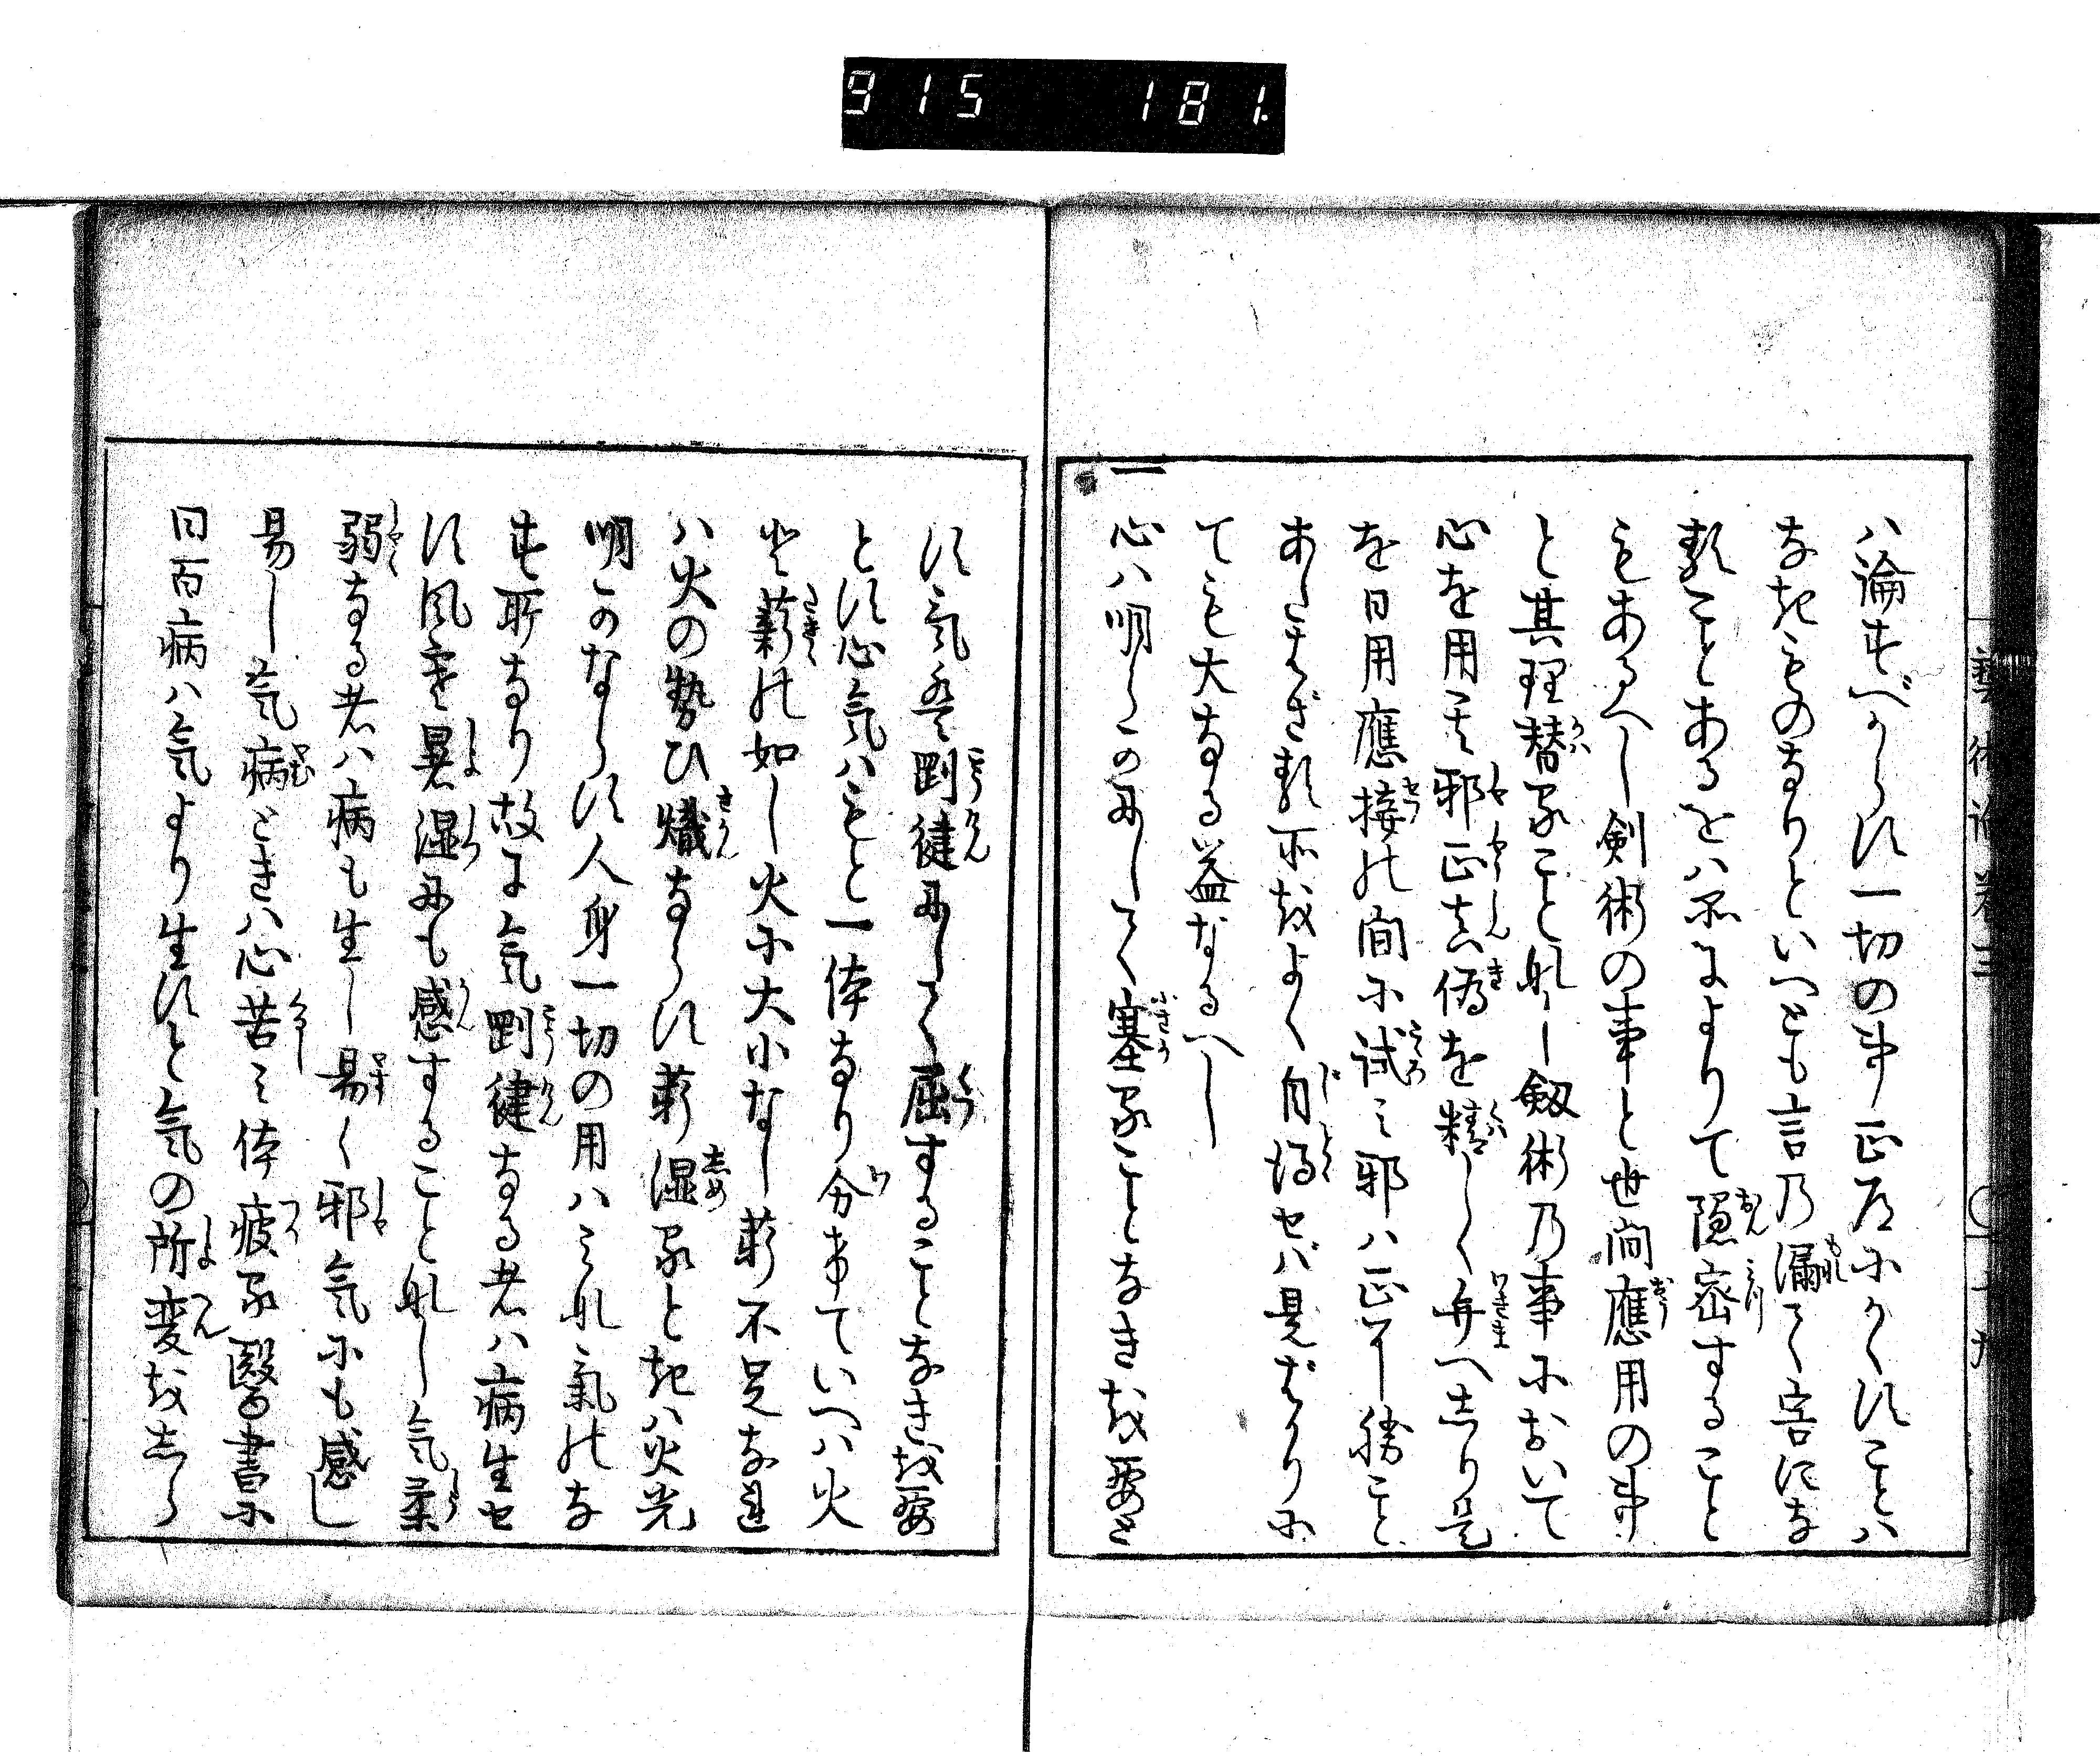 915 181
藝術論巻三 十九
ハ論すべからす一切の事正道にかくすことハ
なきものなりといへとも言乃漏て害にな
ることあるをハ所によりて隠密すること
もあるへし剣術の事と世間應用の事
と其理替ることなし剱術乃事において
心を用て邪正真偽を精しく弁へしり是
を日用應接の間に試ミ邪ハ正に勝こと
あたはざる所をよく自得せバ是ばかりに
ても大なる益なるへし
一
心ハ明らかにして塞ることなきを要と
す気ハ剛健にして屈することなきを要
とす心気ハもと一体なり分ていへハ火
と薪の如し火に大小なし薪不足なれ
ハ火の勢ひ熾ならす薪湿るときハ火光
明かならす人身一切の用ハミな氣のな
す所なり故に気剛健なる者ハ病生せ
す風寒暑湿にも感することなし気柔
弱なる者ハ病も生し易く邪気にも感し
易し気病ときハ心苦ミ体疲る醫書に
曰百病ハ気より生すと気の所変をしら